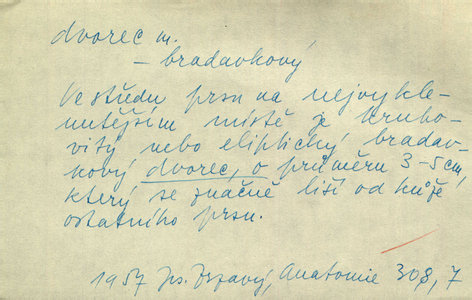 dvorec m.
– bradavkový
Ve středu prsu na nejvykle-
nutějším místě je kruho-
vitý nebo eliptický bradav-
kový dvorec, o průměru 3-5 cm,
který se značně liší od kůže
ostatního prsu.
1957 Js. Zrzavý, Anatomie 308, 7